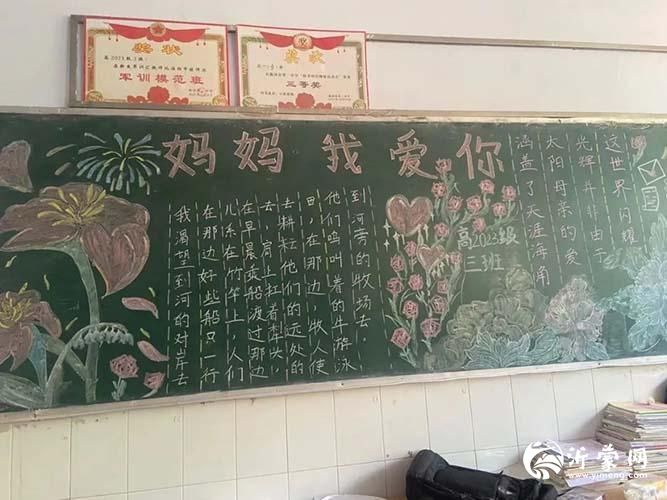 奖状
高2023级3班:
军训模范班
奖状
三等奖
妈妈我爱你
我渴望到河的对岸去
在那边好些船只一行
儿系在竹竿上,人们
在早晨乘船渡过那边
去,肩上扛着犁头,
去耕耘他们的远处的
田,在那边,牧人使
他们鸣叫着的牛游泳
到河旁的牧场去,
高2023级
三班
这世界闪耀
光辉并非由于
太阳母亲的爱
涵盖了天涯海角
沂蒙网
www.yimeng.com